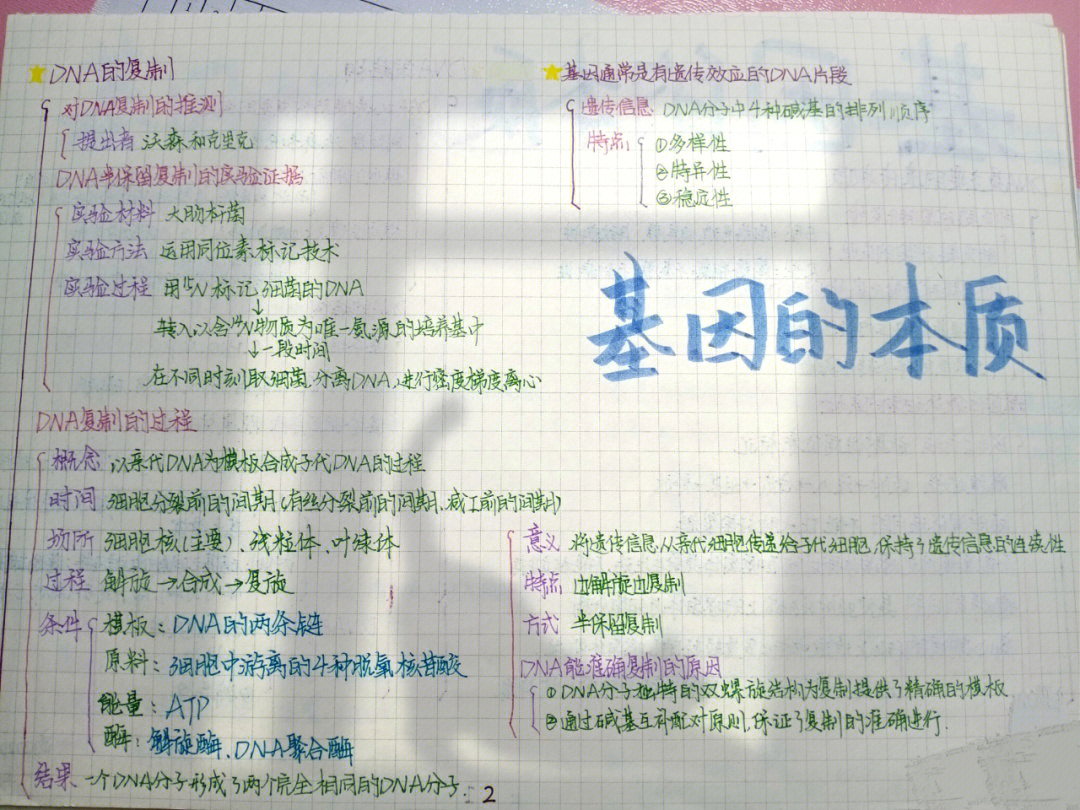 DNA的复制
对DNA复制的推测
提出者 沃森和克里克
DNA半保留复制的实验证据
实验材料 大肠杆菌
实验方法 运用同位素标记技术
实验过程 用¹⁵N标记细菌的DNA
↓
转入以含¹⁴N物质为唯一氮源的培养基中
↓一段时间
在不同时刻取细菌,分离DNA,进行密度梯度离心
DNA复制的过程
概念 以亲代DNA为模板合成子代DNA的过程
时间 细胞分裂前的间期(有丝分裂前的间期、减Ⅰ前的间期)
场所 细胞核(主要)、线粒体、叶绿体
过程 解旋→合成→复旋
条件 模板:DNA的两条链
原料:细胞中游离的4种脱氧核苷酸
能量:ATP
酶:解旋酶、DNA聚合酶
结果 一个DNA分子形成了两个完全相同的DNA分子.
基因通常是有遗传效应的DNA片段
遗传信息 DNA分子中4种碱基的排列顺序
特点 ①多样性
②特异性
③稳定性
基因的本质
意义 将遗传信息从亲代细胞传递给子代细胞,保持了遗传信息的连续性
特点 边解旋边复制
方式 半保留复制
DNA能准确复制的原因
①DNA分子独特的双螺旋结构为复制提供了精确的模板
②通过碱基互补配对原则,保证了复制的准确进行.
2